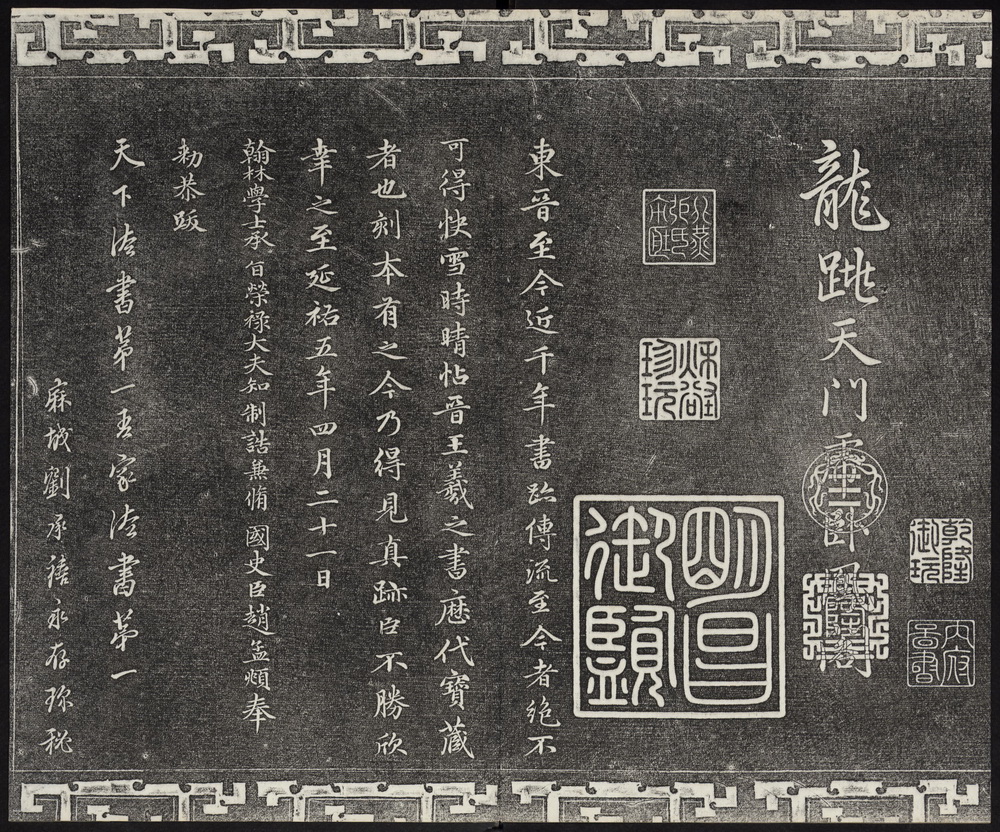 龍跳天門虎卧鳳閣
乾隆御玩
內府書畫
明昌御覽
珍玩
東晉至今近千年書跡傳流至今者絕不
可得快雪時晴帖晉王羲之書歷代寶藏
者也刻本有之今乃得見真跡臣不勝欣
幸之至延祐五年四月二十一日
翰林學士承旨榮祿大夫知制誥兼脩國史臣趙孟頫奉
勑恭跋
天下法書第一吾家法書第一
麻城劉承禧永存珍秘